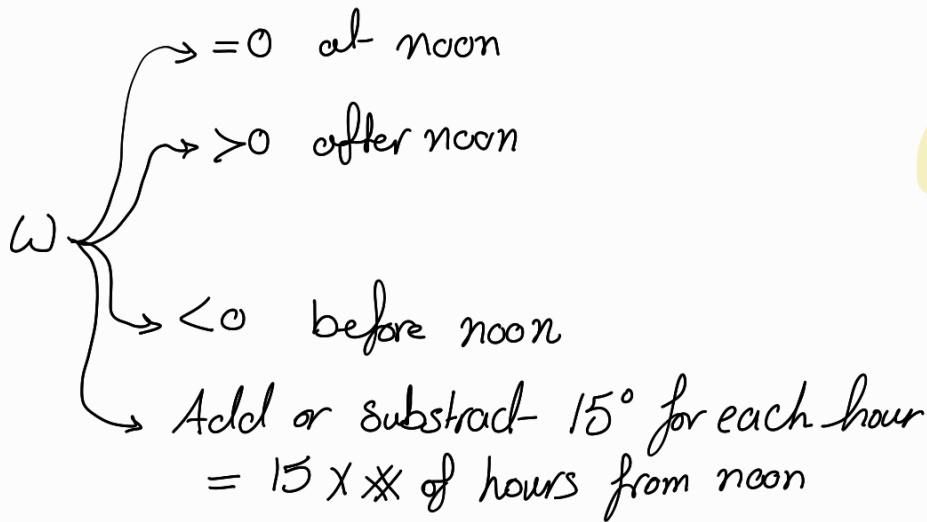 =0 at noon
>0 after noon
ω
<0 before noon
Add or substract 15° for each hour
= 15 x # of hours from noon